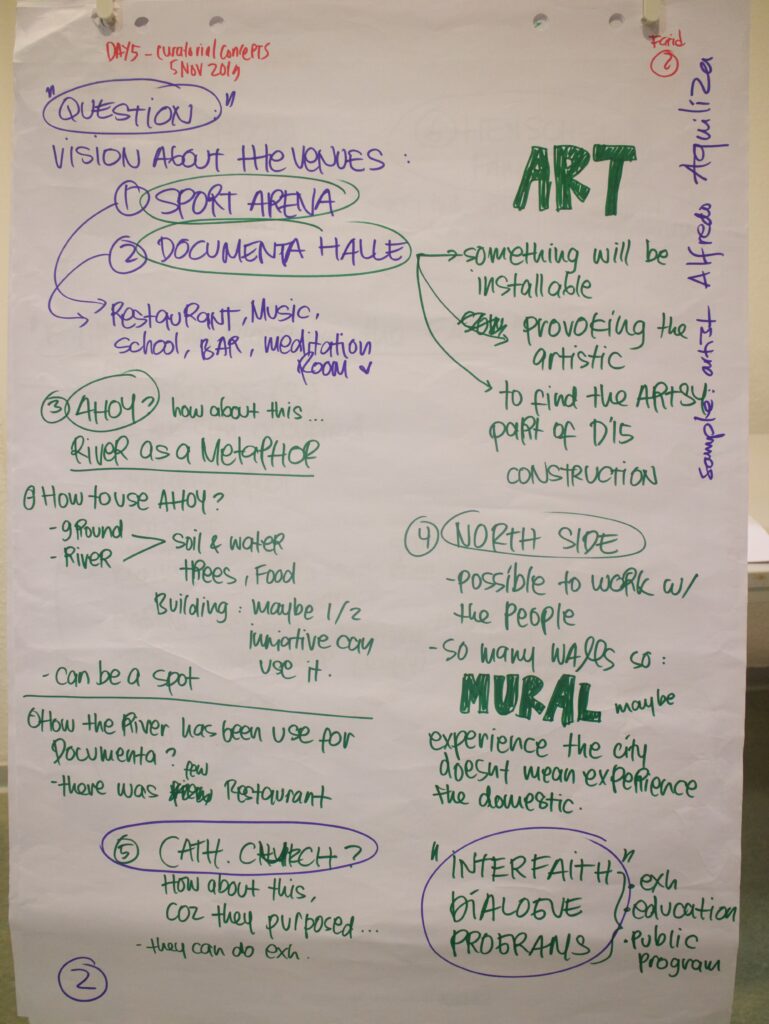 DAY5 - curatorial concepts
5 NOV 2019
Farid
2
"QUESTION"
VISION ABOUT the VENUES :
1 SPORT ARENA
2 DOCUMENTA HALLE
Restaurant, Music,
school, BAR, meditation
ROOM
ART
something will be
installable
provoking the
artistic
to find the ARTSY
part of D'15
CONSTRUCTION
sample: artist Alfredo Aquiliza
3 AHOY? how about this...
River as a Metaphor
How to use AHOY?
- ground
- River
soil & water
trees, Food
Building : maybe 1/2
ininiative can
use it.
- can be a spot
How the River has been use for
Documenta?
- there was few Restaurant
4 NORTH SIDE
- possible to work w/
the people
- so many walls so :
MURAL maybe
experience the city
doesnt mean experience
the domestic.
5 CATH. CHURCH?
How about this,
COZ they purposed...
- they can do exh.
"INTERFAITH
DIALOGUE
PROGRAMS"
• exh
• education
• public
program
2